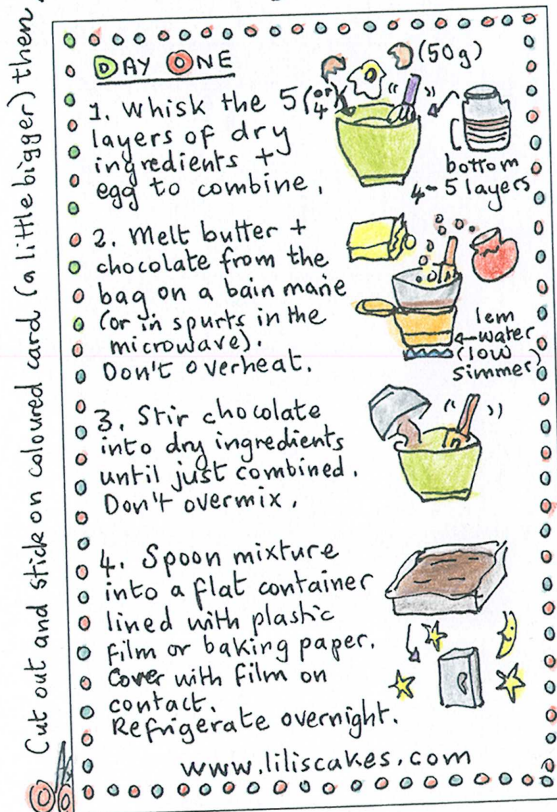 Cut out and stick on coloured card (a little bigger) then,
DAY ONE
(50g)
1. Whisk the 5 (or 4)
layers of dry
ingredients +
egg to combine.
bottom
4-5 layers
2. Melt butter +
chocolate from the
bag on a bain marie
(or in spurts in the
microwave).
Don't overheat.
1cm
water
(low
simmer)
3. Stir chocolate
into dry ingredients
until just combined.
Don't overmix.
4. Spoon mixture
into a flat container
lined with plastic
film or baking paper.
Cover with film on
contact.
Refrigerate overnight.
www.liliscakes.com